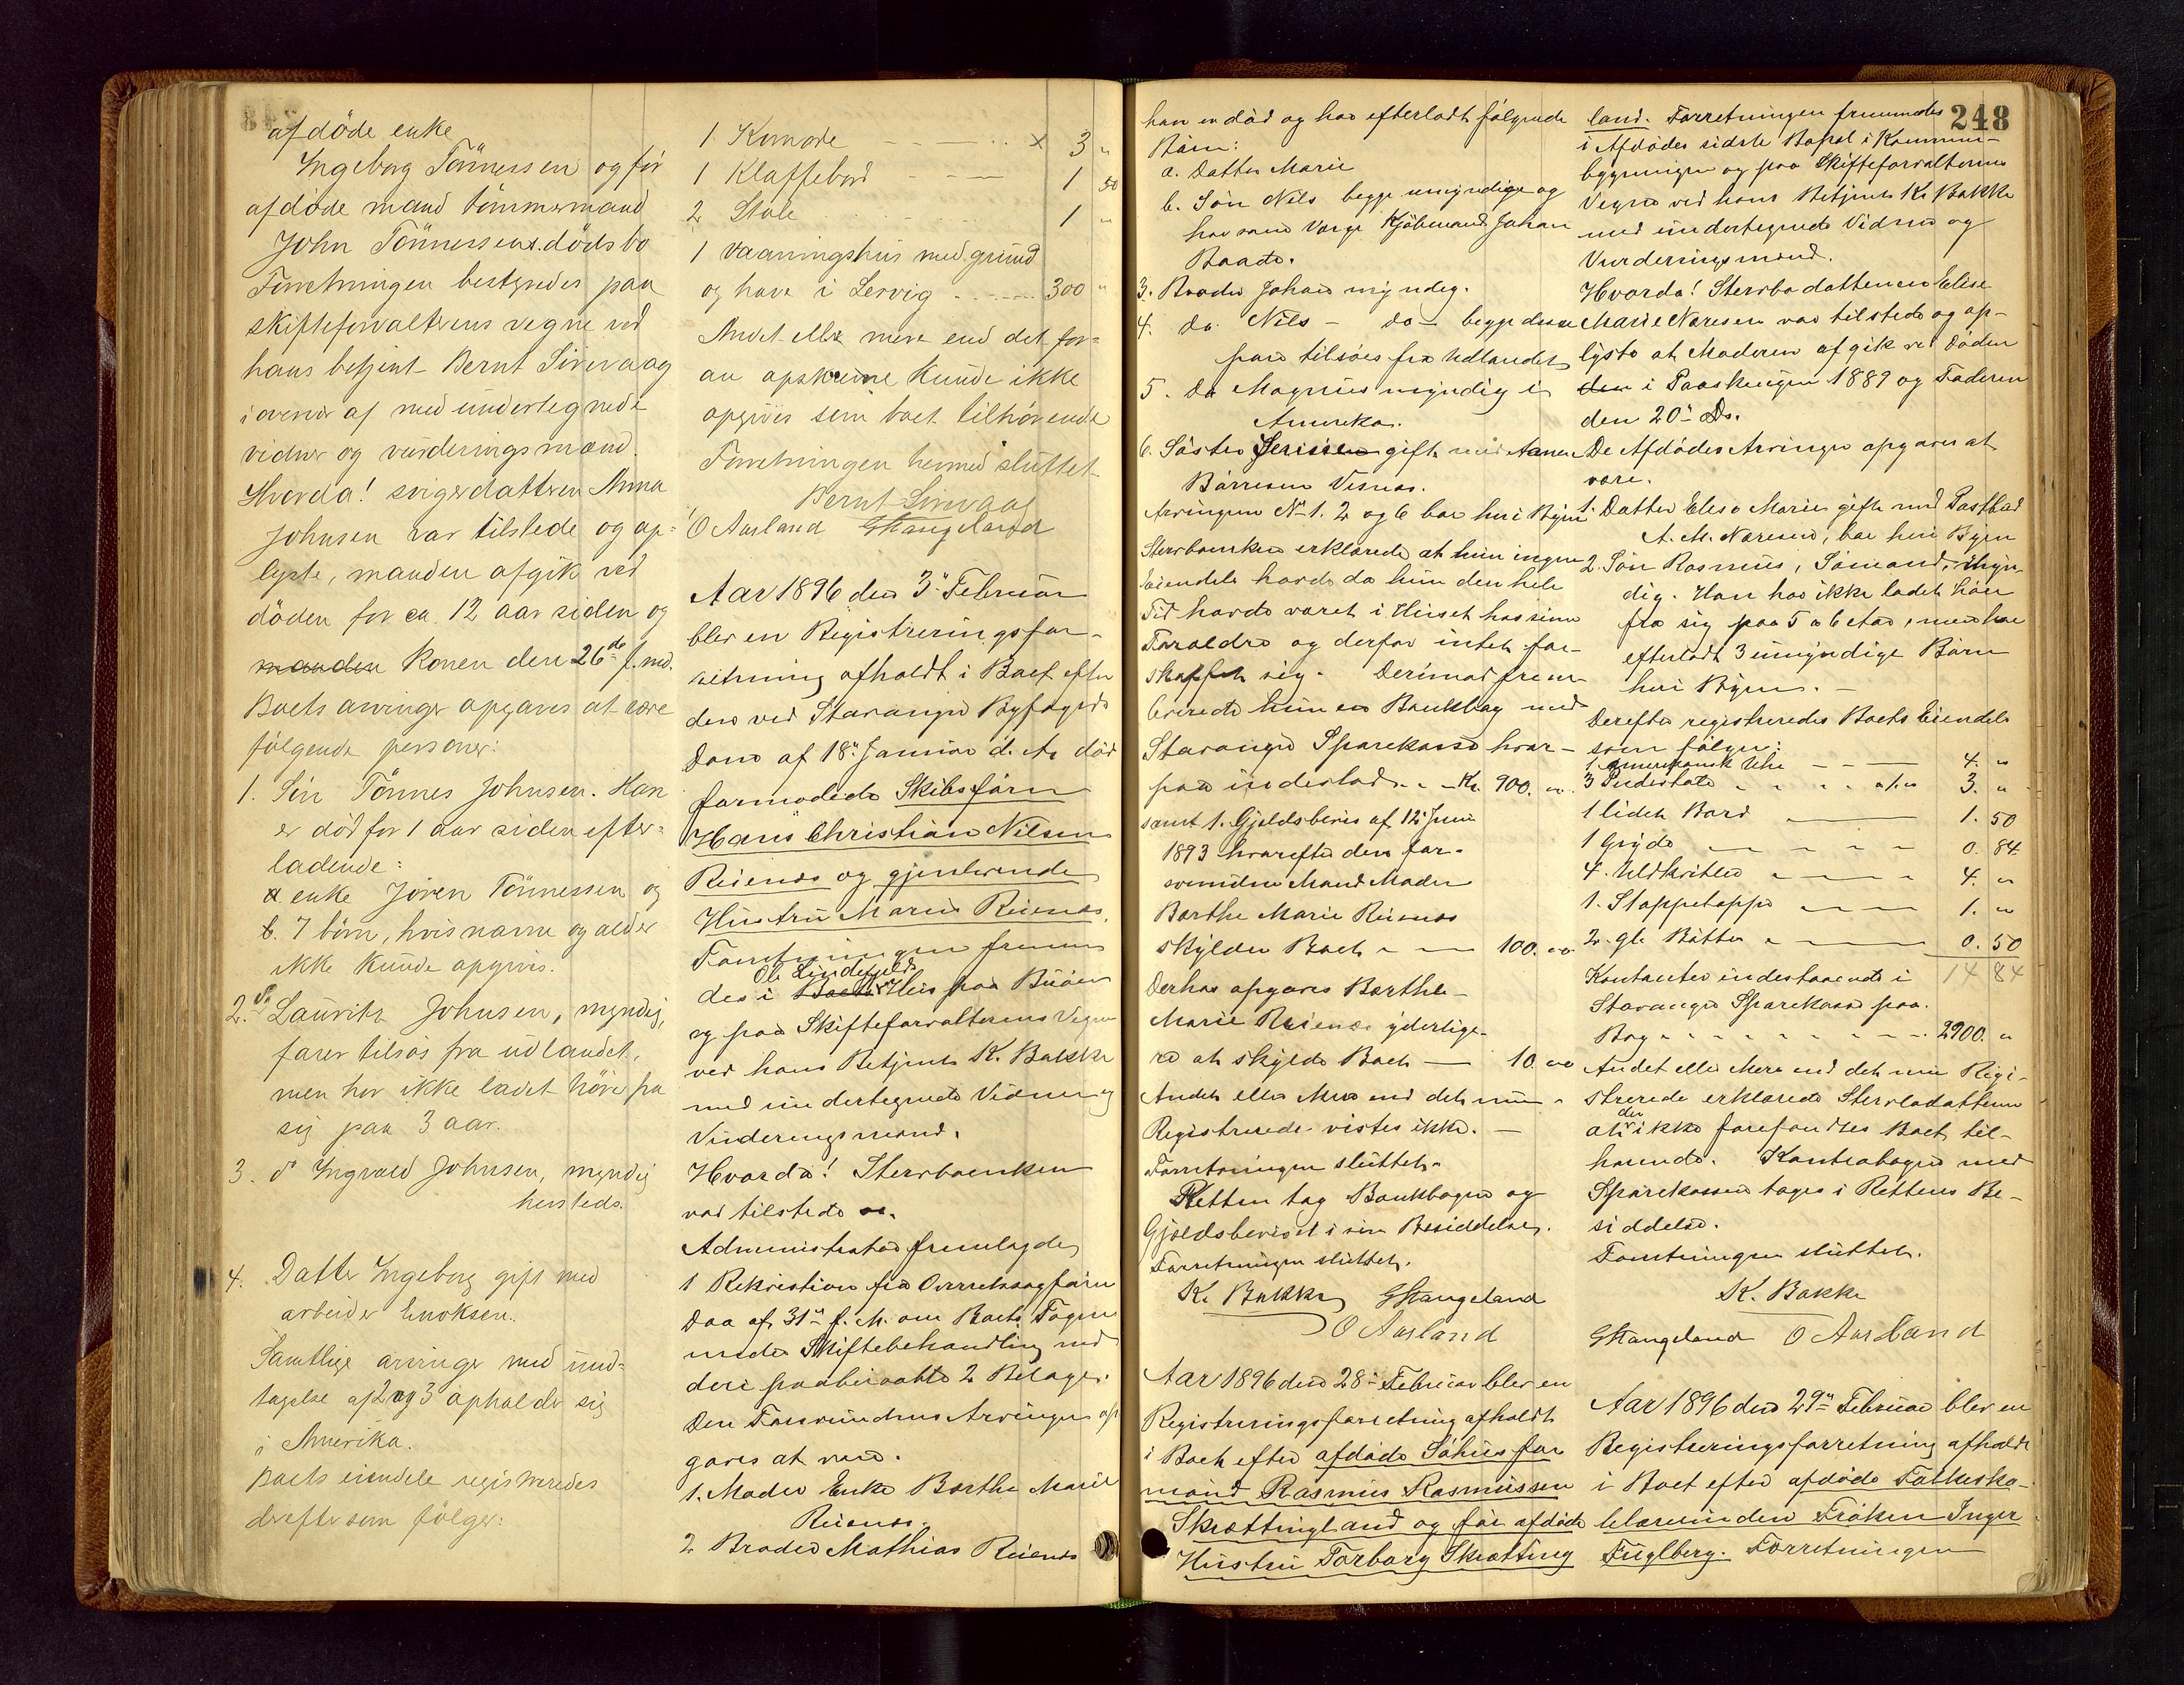 afdöde enke
Ingeborg Tönnessen og før
afdöde mand tömmermand
John Tönnessens dödsbo
Forretningen bestyredes paa
skifteforvalterens vegne ved
hans betjent Bernt Sirevaag
i overvær af medundertegnede
vidner og vurderingsmænd.
Hvorda! svigerdatteren Anna
Johnsen var tilstede og op=
lyste, manden afgik ved
döden for ca. 12 aar siden og
manden konen den 26de f. md.
Boets arvinger opgaves at være
følgende personer:
1. Sön Tönnes Johnsen. Han
er död for 1 aar siden efter=
ladende:
a enke Joren Tönnessen og
b. 7 börn, hvis navne og alder
ikke kunde opgives.
2. do Lauritz Johnsen, myndig,
farer tilsös fra udlandet,
men har ikke ladet höre fra
sig paa 3 aar.
3. do Ingvald Johnsen, myndig
hersteds.
4. Datter Ingeborg gift med
arbeider Enoksen.
Samtlige arvinger med und=
tagelse af 2 og 3 opholder sig
i Amerika.
Boets eiendele registreredes
derefter som fölger:
1 Komode x 3 "
1 Klaffebord 1 50
2 Stole 1 "
1 vaaningshus med grund
og have i Lervig 300 "
Andet eller mere end det for=
an opskrevne kunde ikke
opgives som boet tilhörende
Forretningen hermed sluttet
Bernt Sirevaag
O Aarland GStangeland
Aar 1896 den 3" Februar
blev en Registreringsfor-
retning afholdt i Boet efter
den ved Stavanger Byfogeds
Dom af 18" Januar d. A. död
formodede Skibsförer
Hans Christian Nilsen
Reienæs og gjenlevende
Hustru Maria Reienæs.
Forretningen fremme
des i Boets Ole Lindefjelds Hus paa Buöen
og paa Skifteforvalterens Vegne
ved hans Betjent K. Bakke
med undertegnede Vidner og
Vurderingsmænd.
Hvorda! Sterboenken
var tilstede
Administrator fremlagde
1 Rekvisition fra Overretssagförer
Daa af 31" f. M. om Boets Tagen
under Skiftebehandling med
deri paaberaabte 2 Bilage.
Den Forsvundnes Arvinger op
gaves at være.
1. Moder Enke Berthe Marie
Reienæs.
2 Broder Mathias Reienæs
248
han er död og har efterladt fölgende
Börn:
a. Datter Marie
b. Sön Nils begge umyndige og
har som Værge Kjöbmand Johan
Baade.
3. Broder Johan myndig.
4. do Nils - do - begge disse
fare tilsöes fra Udlandet
5. do Magnus myndig i
Amerika.
6. Söster Serine gift med Aanen
Börresen Visnes.
Arvingerne No 1. 2 og 6 bor her i Byen
Sterboenken erklærede at hun ingen
Eiendele havde da hun den hele
Tid havde været i Huset hos sine
Foraldre og derfor intet for-
skaffet sig. Derimod frem-
leverede hun en Bankbog med
Stavanger Sparekasse hvor-
paa indestod Kr. 900. "
samt 1. Gjeldsbevis af 12" Juni
1893 hvorefter den for-
svundne Mands Moder
Berthe Marie Reienæs
skylder Boet 100. "
Derhos opgaves Berthe
Marie Reienæs yderlige-
re at skylde Boet 10. "
Andet eller Mere end det nu
Registrerede vistes ikke. -
Forretningen sluttet.
Retten tog Bankbogen og
Gjeldsbeviset i sin Besiddelse.
Forretningen sluttet.
K. Bakke GStangeland
O Aarland
Aar 1896 den 28" Februar blev en
Registreringsforretning afholdt
i Boet efter afdöde Söhusfor
mand Rasmus Rasmussen
Skrættingland og för afdöde
Hustru Torborg Skrætting
land. Forretningen fremmedes
i Afdödes sidste Bopæl i Kommune-
bygningen og paa Skifteforvalterens
Vegne ved hans Betjent K. Bakke
med undertegnede Vidner og
Vurderingsmænd.
Hvorda! Sterbodatteren Elise
Marie Næresen var tilstede og op-
lyste at Moderen afgik ved Döden
den i Paaskeugen 1889 og Faderen
den 20" Ds.
De Afdödes Arvinger opgaves at
være.
1. Datter Elise Marie gift med Postbud
A. M. Næresen, bor her i Byen
2. Sön Rasmus, Sömand, myn
dig. Han har ikke ladet höre
fra sig paa 5 a 6 Aar, men har
efterladt 3 umyndige Börn
her i Byen. -
Derefter registreredes Boets Eiendele
som fölger:
1 amerikansk Uhr 4. "
3 Pindestole 3. "
1 lidet Bord 1. 50
1 Gryde 0. 84
4. Uldkritler 4. "
1. Stoppetoppe 1. "
2. gl. Bötter 0. 50
14 84
Kontanter indestaaende i
Stavanger Sparekasse paa
Bog 2900. "
Andet eller Mere end det nu Regi-
strerede erklærede Sterbodatteren
at der ikke forefandtes Boet til-
hörende. Kontrabogen med
Sparekassen toges i Rettens Be-
siddelse.
Forretningen sluttet.
K. Bakke
GStangeland O Aarland
Aar 1896 den 29" Februar blev en
Registreringsforretning afholdt
i Boet efter afdöde Folkesko-
lelærerinden Fröken Inger
Fuglberg. Forretningen